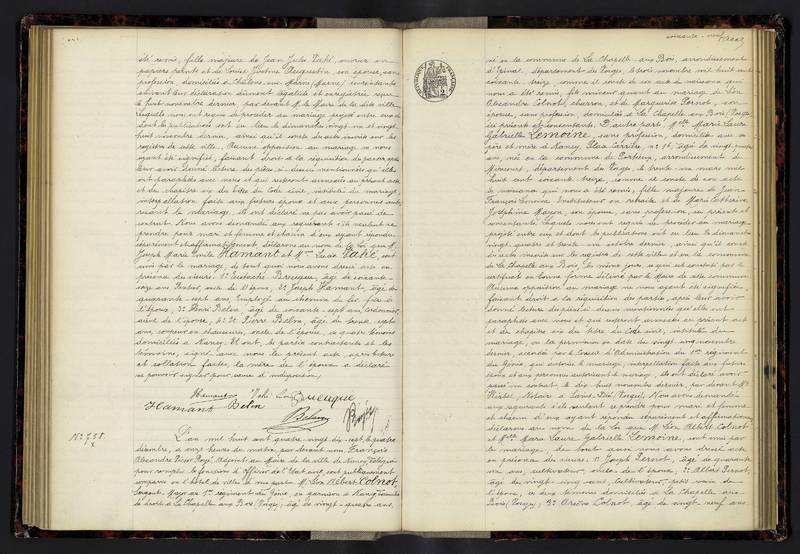 été remis, fille majeure de Jean Jules Pahé, ouvrier en
papiers peints et de Louise Justine Augustin, son épouse, sans
profession, domiciliés à Châlons-sur-Marne (Marne)
suivant leur déclaration dûment légalisée et enregistrée reçue
le huit novembre dernier, par devant M. le Maire de la dite ville
lesquels nous ont requis de procéder au mariage projeté entre eux et
dont les publications ont eu lieu les dimanches vingt-un et vingt-
huit novembre dernier, ainsi qu'il conste des actes inscrits sur les
registres de cette ville. Aucune opposition au mariage ne nous
ayant été signifiée, faisant droit à la réquisition des parties, après
leur avoir donné lecture des pièces ci-dessus mentionnées qu'elles
ont paraphées avec nous et qui resteront annexées au présent acte
et du chapitre six du titre du Code civil, intitulé du mariage,
interpellation faite aux futurs époux et aux personnes auto-
risant le mariage, ils ont déclaré ne pas avoir passé de
contrat. Nous avons demandé aux requérants s'ils veulent se
prendre pour mari et femme et chacun d'eux ayant répondu
séparément et affirmativement déclarons au nom de la loi que M.
Joseph Marie Emile Hamant et Mlle Lucie Pahé, sont
unis par le mariage, de tout quoi nous avons dressé acte en
présence des sieurs: 1° Eustache Breuque, âgé de soixante-
seize ans, Rentier, oncle de l'époux, 2° Joseph Hamant, âgé de
quarante-sept ans, Employé au chemin de fer, frère de
l'époux; 3° Henri Belin, âgé de soixante-sept ans,
aïeul de l'épouse, 4° et Pierre Belin, âgé de trente-sept
ans, coupeur en chaussures, oncle de l'épouse, ces quatre témoins
domiciliés à Nancy. Et ont, les parties contractantes et les
témoins, signé avec nous le présent acte, après lecture
et collation faites, la mère de l'époux a déclaré
ne pouvoir signer pour cause d'indisposition.
Hamant Pahé Breuque
Hamant Belin
Belin
N° 758.
L'an mil huit cent quatre-vingt-dix-sept, le quatre
décembre, à onze heures du matin, par devant nous, François
Alexandre Victor, Adjoint au Maire de la ville de Nancy, délégué
pour remplir les fonctions d'Officier de l'Etat civil, sont publiquement
comparus en l'hôtel de ville M. Léon Albert Colnot,
Sergent-Major au 1er régiment du Génie, en garnison à Nancy, domicilié
de droit à La Chapelle-aux-Bois (Vosges), âgé de vingt-quatre ans,
né en la commune de La Chapelle-aux-Bois, arrondissement
d'Epinal, département des Vosges, le trois novembre mil huit cent
soixante-treize, comme il conste de son acte de naissance qui
nous a été remis, fils mineur quant au mariage de Léon
Alexandre Colnot, charron, et de Marguerite Pernot, son
épouse, sans profession, domiciliés à La Chapelle-aux-Bois (Vosges)
ici présents et consentants. D'autre part, Mlle Marie Laure
Gabrielle Lemoine, sans profession, domiciliée avec ses
père et mère à Nancy, Place Carrière, n° 16, âgée de vingt-quatre
ans, née en la commune de Portieux, arrondissement de
Mirecourt, département des Vosges, le trente-un mars mil
huit cent soixante-treize, comme il conste de son acte
de naissance qui nous a été remis, fille majeure de Jean
François Lemoine, Instituteur en retraite et de Marie Catherine
Joséphine Mayon, son épouse, sans profession, ici présents et
consentants. Lesquels nous ont requis de procéder au mariage
projeté entre eux et dont les publications ont eu lieu les dimanches
vingt-quatre et trente-un octobre dernier, ainsi qu'il conste
des actes inscrits sur les registres de cette ville et en la commune
de La Chapelle-aux-Bois, les mêmes jours, ce qui est constaté par le
certificat en bonne forme délivré par le Maire de cette commune.
Aucune opposition au mariage ne nous ayant été signifiée,
faisant droit à la réquisition des parties, après leur avoir
donné lecture des pièces ci-dessus mentionnées qu'elles ont
paraphées avec nous et qui resteront annexées au présent acte
et du chapitre six du titre du Code civil, intitulé du
mariage, vu la permission en date du vingt-cinq novembre
dernier, accordée par le Conseil d'Administration du 1er régiment
du Génie, qui autorise le mariage, interpellation faite aux futurs
époux et aux personnes autorisant le mariage, ils ont déclaré avoir
passé un contrat, le dix-huit novembre dernier, par devant Me
Notaire à (Vosges). Nous avons demandé
aux requérants s'ils veulent se prendre pour mari et femme
et chacun d'eux ayant répondu séparément et affirmativement
déclarons au nom de la loi que M. Léon Albert Colnot
et Mlle Marie Laure Gabrielle Lemoine, sont unis par
le mariage, de tout quoi nous avons dressé acte
en présence des sieurs: 1° Joseph Pernot, âgé de quarante
ans, cultivateur, oncle de l'époux; 2° Albert Pernot,
âgé de vingt-cinq ans, Cultivateur, petit cousin de
l'époux, ces deux témoins domiciliés à La Chapelle-aux-
Bois (Vosges); 3° Colnot, âgé de vingt-neuf ans,